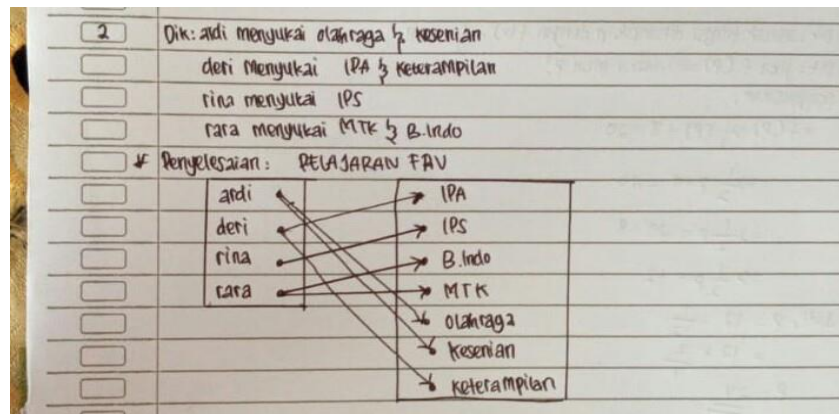 2 Dik: ardi menyukai olahraga & kesenian
deri menyukai IPA & keterampilan
rina menyukai IPS
rara menyukai MTK & B.Indo
* Penyelesaian: PELAJARAN FAV
ardi IPA
deri IPS
rina B.Indo
rara MTK
olahraga
kesenian
keterampilan